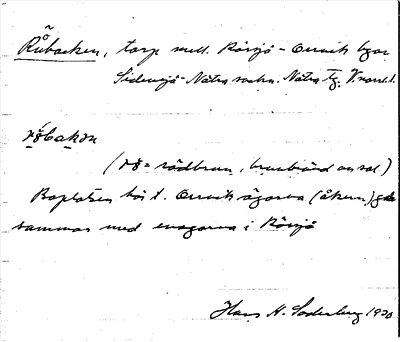 Råbacken, torp mell. Rörsjö - Orrvik byar
Sidensjö - Nätra sockn. Nätra tg. V.norrl.l.
råbakɜn
(rå = rödbrun, brunbränd om sol)
Boplatsen hör t. Orrvik ägorna (åkern) gå
samman med ängarna i Rörsjö
Hans N. Söderberg 1930